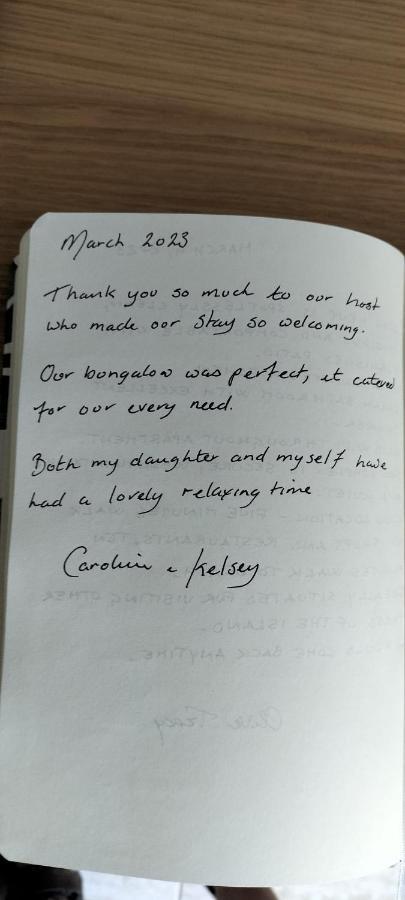 March 2023
Thank you so much to our host
who made our stay so welcoming.
Our bungalow was perfect, it catered
for our every need.
Both my daughter and myself have
had a lovely relaxing time
Caroline & Kelsey